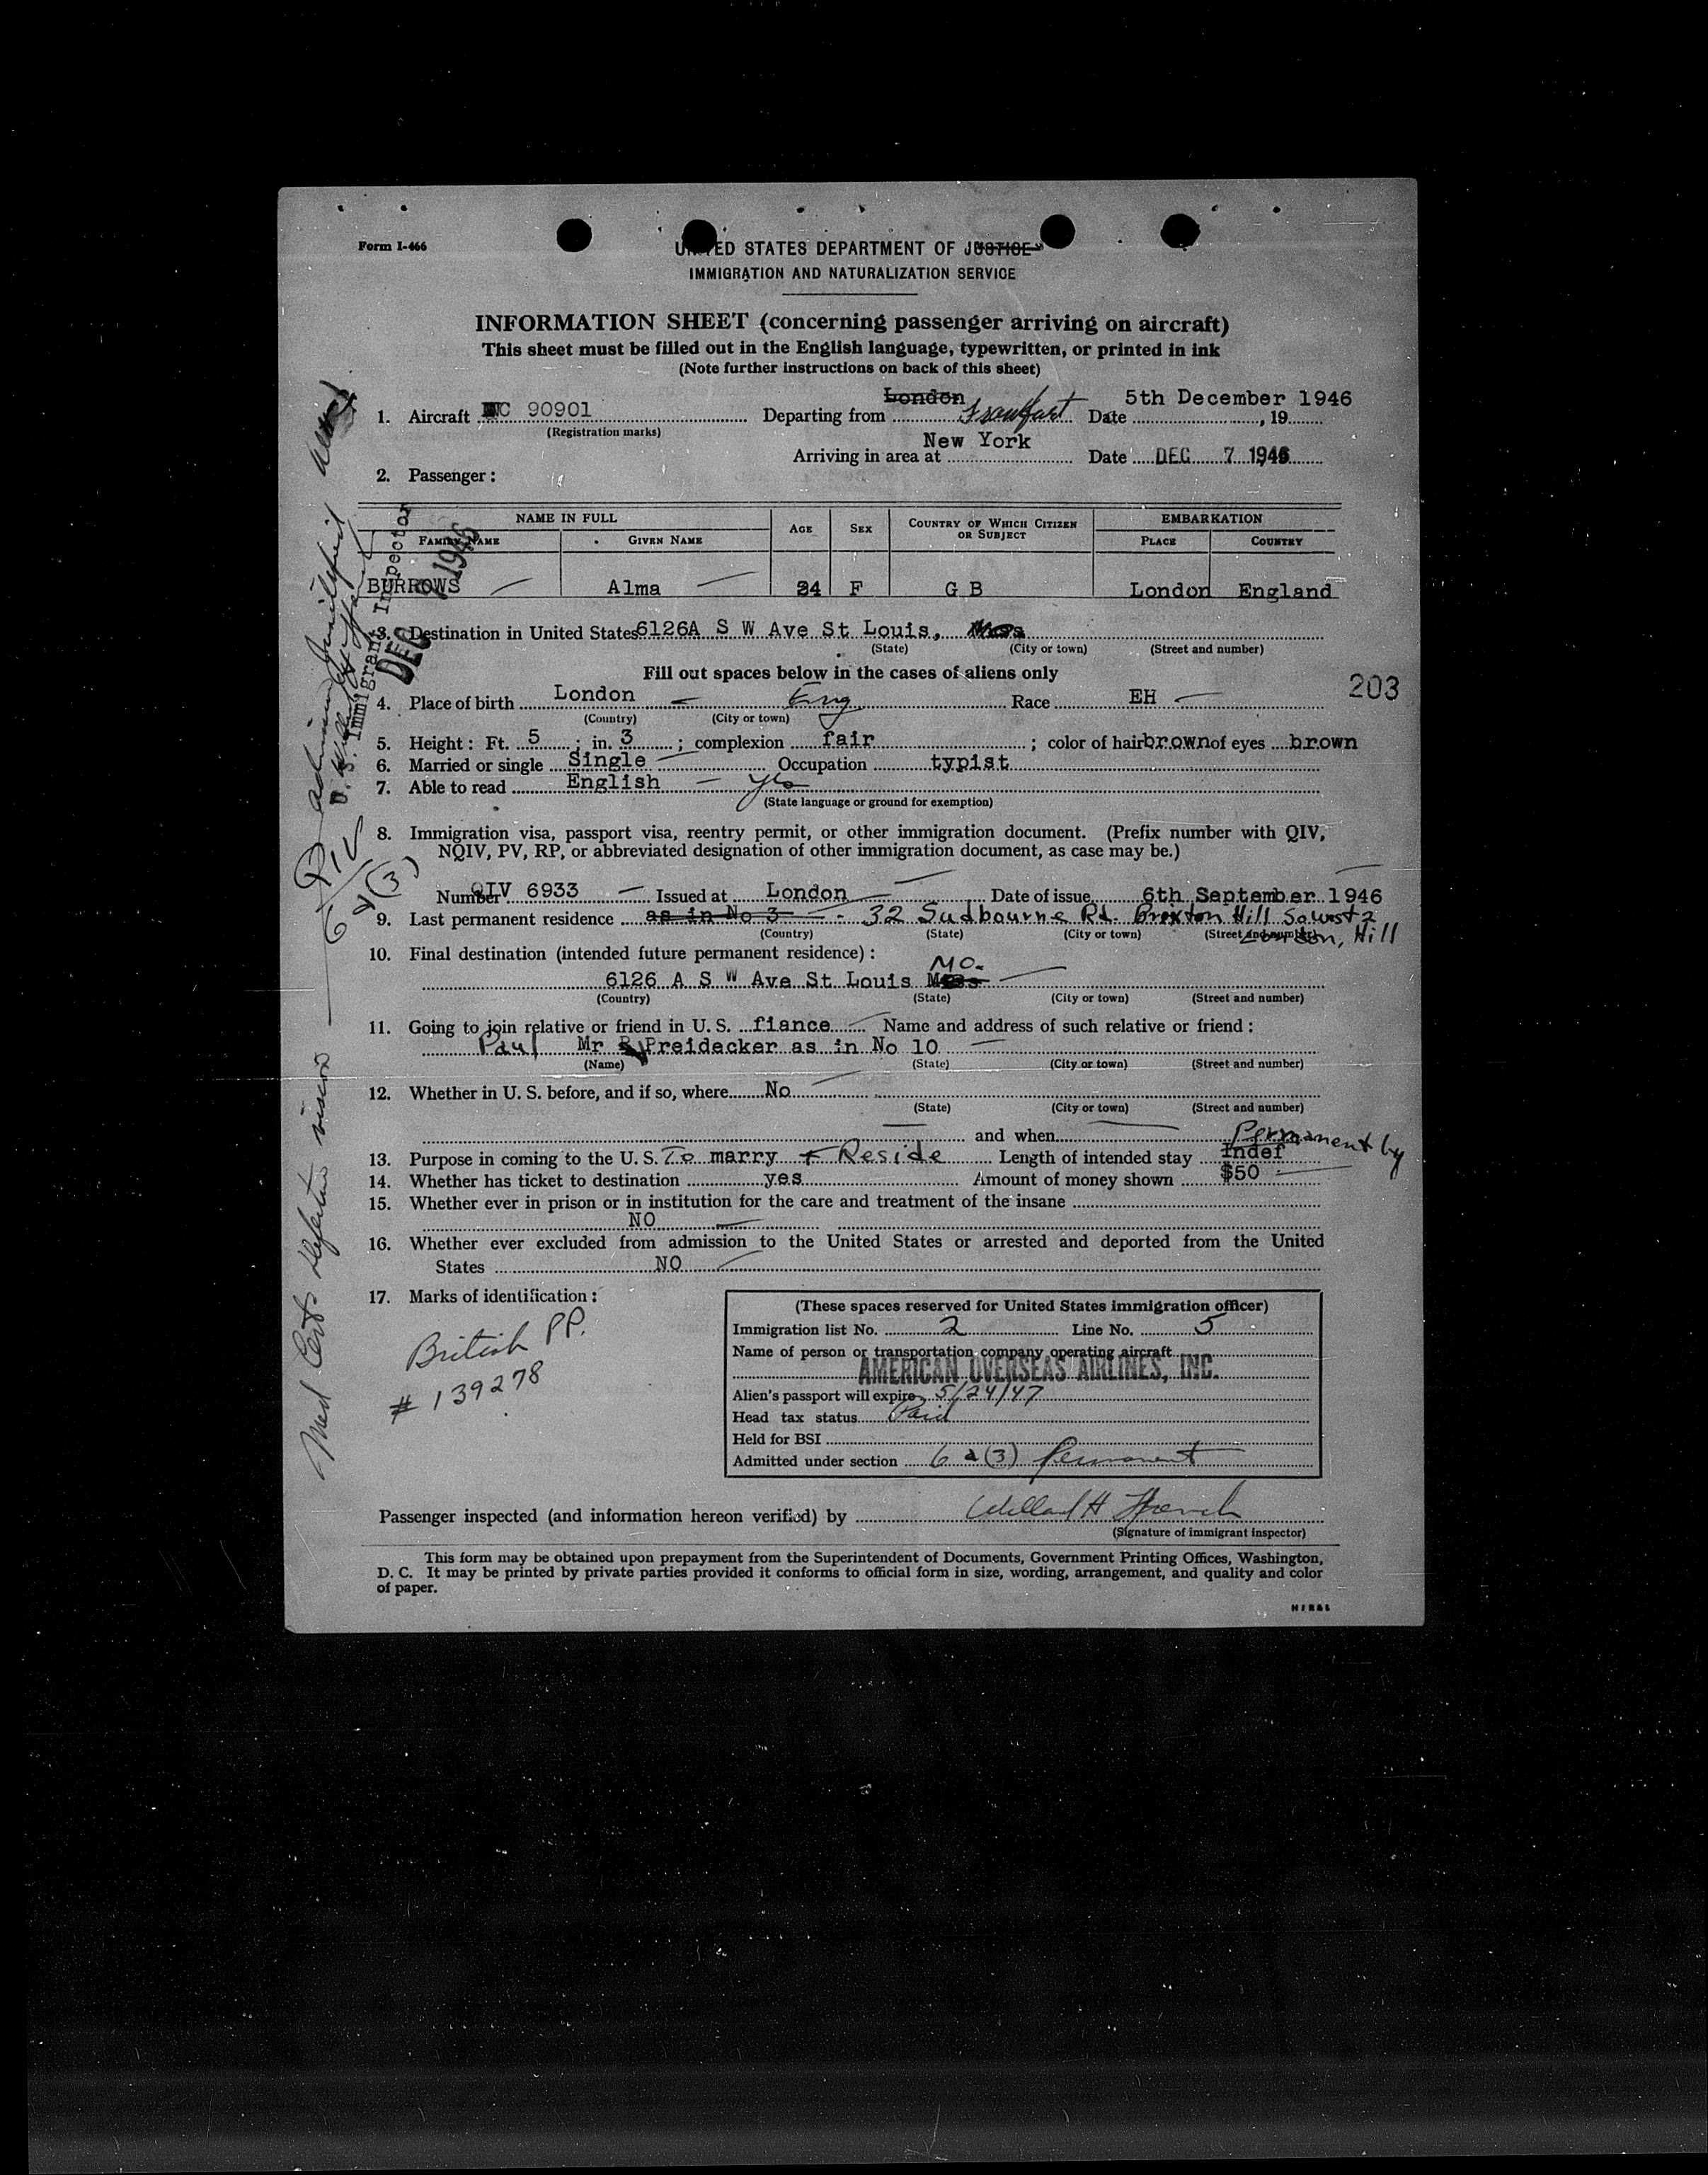 Form I-466
UNITED STATES DEPARTMENT OF JUSTICE
IMMIGRATION AND NATURALIZATION SERVICE
INFORMATION SHEET (concerning passenger arriving on aircraft)
This sheet must be filled out in the English language, typewritten, or printed in ink
(Note further instructions on back of this sheet)
London 5th December 1946
1. Aircraft NC 90901 Departing from Frankfurt Date , 19
(Registration marks)
New York
Arriving in area at Date DEC 7 1946
2. Passenger:
NAME IN FULL AGE SEX COUNTRY OF WHICH CITIZEN OR SUBJECT EMBARKATION
FAMILY NAME GIVEN NAME PLACE COUNTRY
BURROWS Alma 24 F G B London England
3. Destination in United States 6126A S W Ave St Louis,
(State) (City or town) (Street and number)
Fill out spaces below in the cases of aliens only
203
4. Place of birth London Eng Race EH
(Country) (City or town)
5. Height: Ft. 5 ; in. 3 ; complexion fair ; color of hair brown of eyes brown
6. Married or single Single Occupation typist
7. Able to read English - yes
(State language or ground for exemption)
8. Immigration visa, passport visa, reentry permit, or other immigration document. (Prefix number with QIV,
NQIV, PV, RP, or abbreviated designation of other immigration document, as case may be.)
Number QIV 6933 Issued at London Date of issue 6th September 1946
9. Last permanent residence as in No 3 - 32 Sudbourne Rd. Brixton Hill So west 2
(Country) (State) (City or town) (Street and number) London, Hill
10. Final destination (intended future permanent residence):
MO.
6126 A S W Ave St Louis Mass
(Country) (State) (City or town) (Street and number)
11. Going to join relative or friend in U. S. fiance Name and address of such relative or friend:
Paul Mr Preidecker as in No 10
(Name) (State) (City or town) (Street and number)
12. Whether in U. S. before, and if so, where No
(State) (City or town) (Street and number)
and when Permanent by
13. Purpose in coming to the U. S. To marry + Reside Length of intended stay Indef
14. Whether has ticket to destination yes Amount of money shown $50
15. Whether ever in prison or in institution for the care and treatment of the insane
NO
16. Whether ever excluded from admission to the United States or arrested and deported from the United
States NO
17. Marks of identification:
British PP.
# 139278
(These spaces reserved for United States immigration officer)
Immigration list No. 2 Line No. 5
Name of person or transportation company operating aircraft
AMERICAN OVERSEAS AIRLINES, INC.
Alien's passport will expire 5/24/47
Head tax status Paid
Held for BSI
Admitted under section 6 a(3) Permanent
Passenger inspected (and information hereon verified) by Willard H
(Signature of immigrant inspector)
This form may be obtained upon prepayment from the Superintendent of Documents, Government Printing Offices, Washington,
D. C. It may be printed by private parties provided it conforms to official form in size, wording, arrangement, and quality and color
of paper.
Med Cert. defective vision
QIV
6 a(3)
U. S. Immigrant Inspector
DEC 7 1946